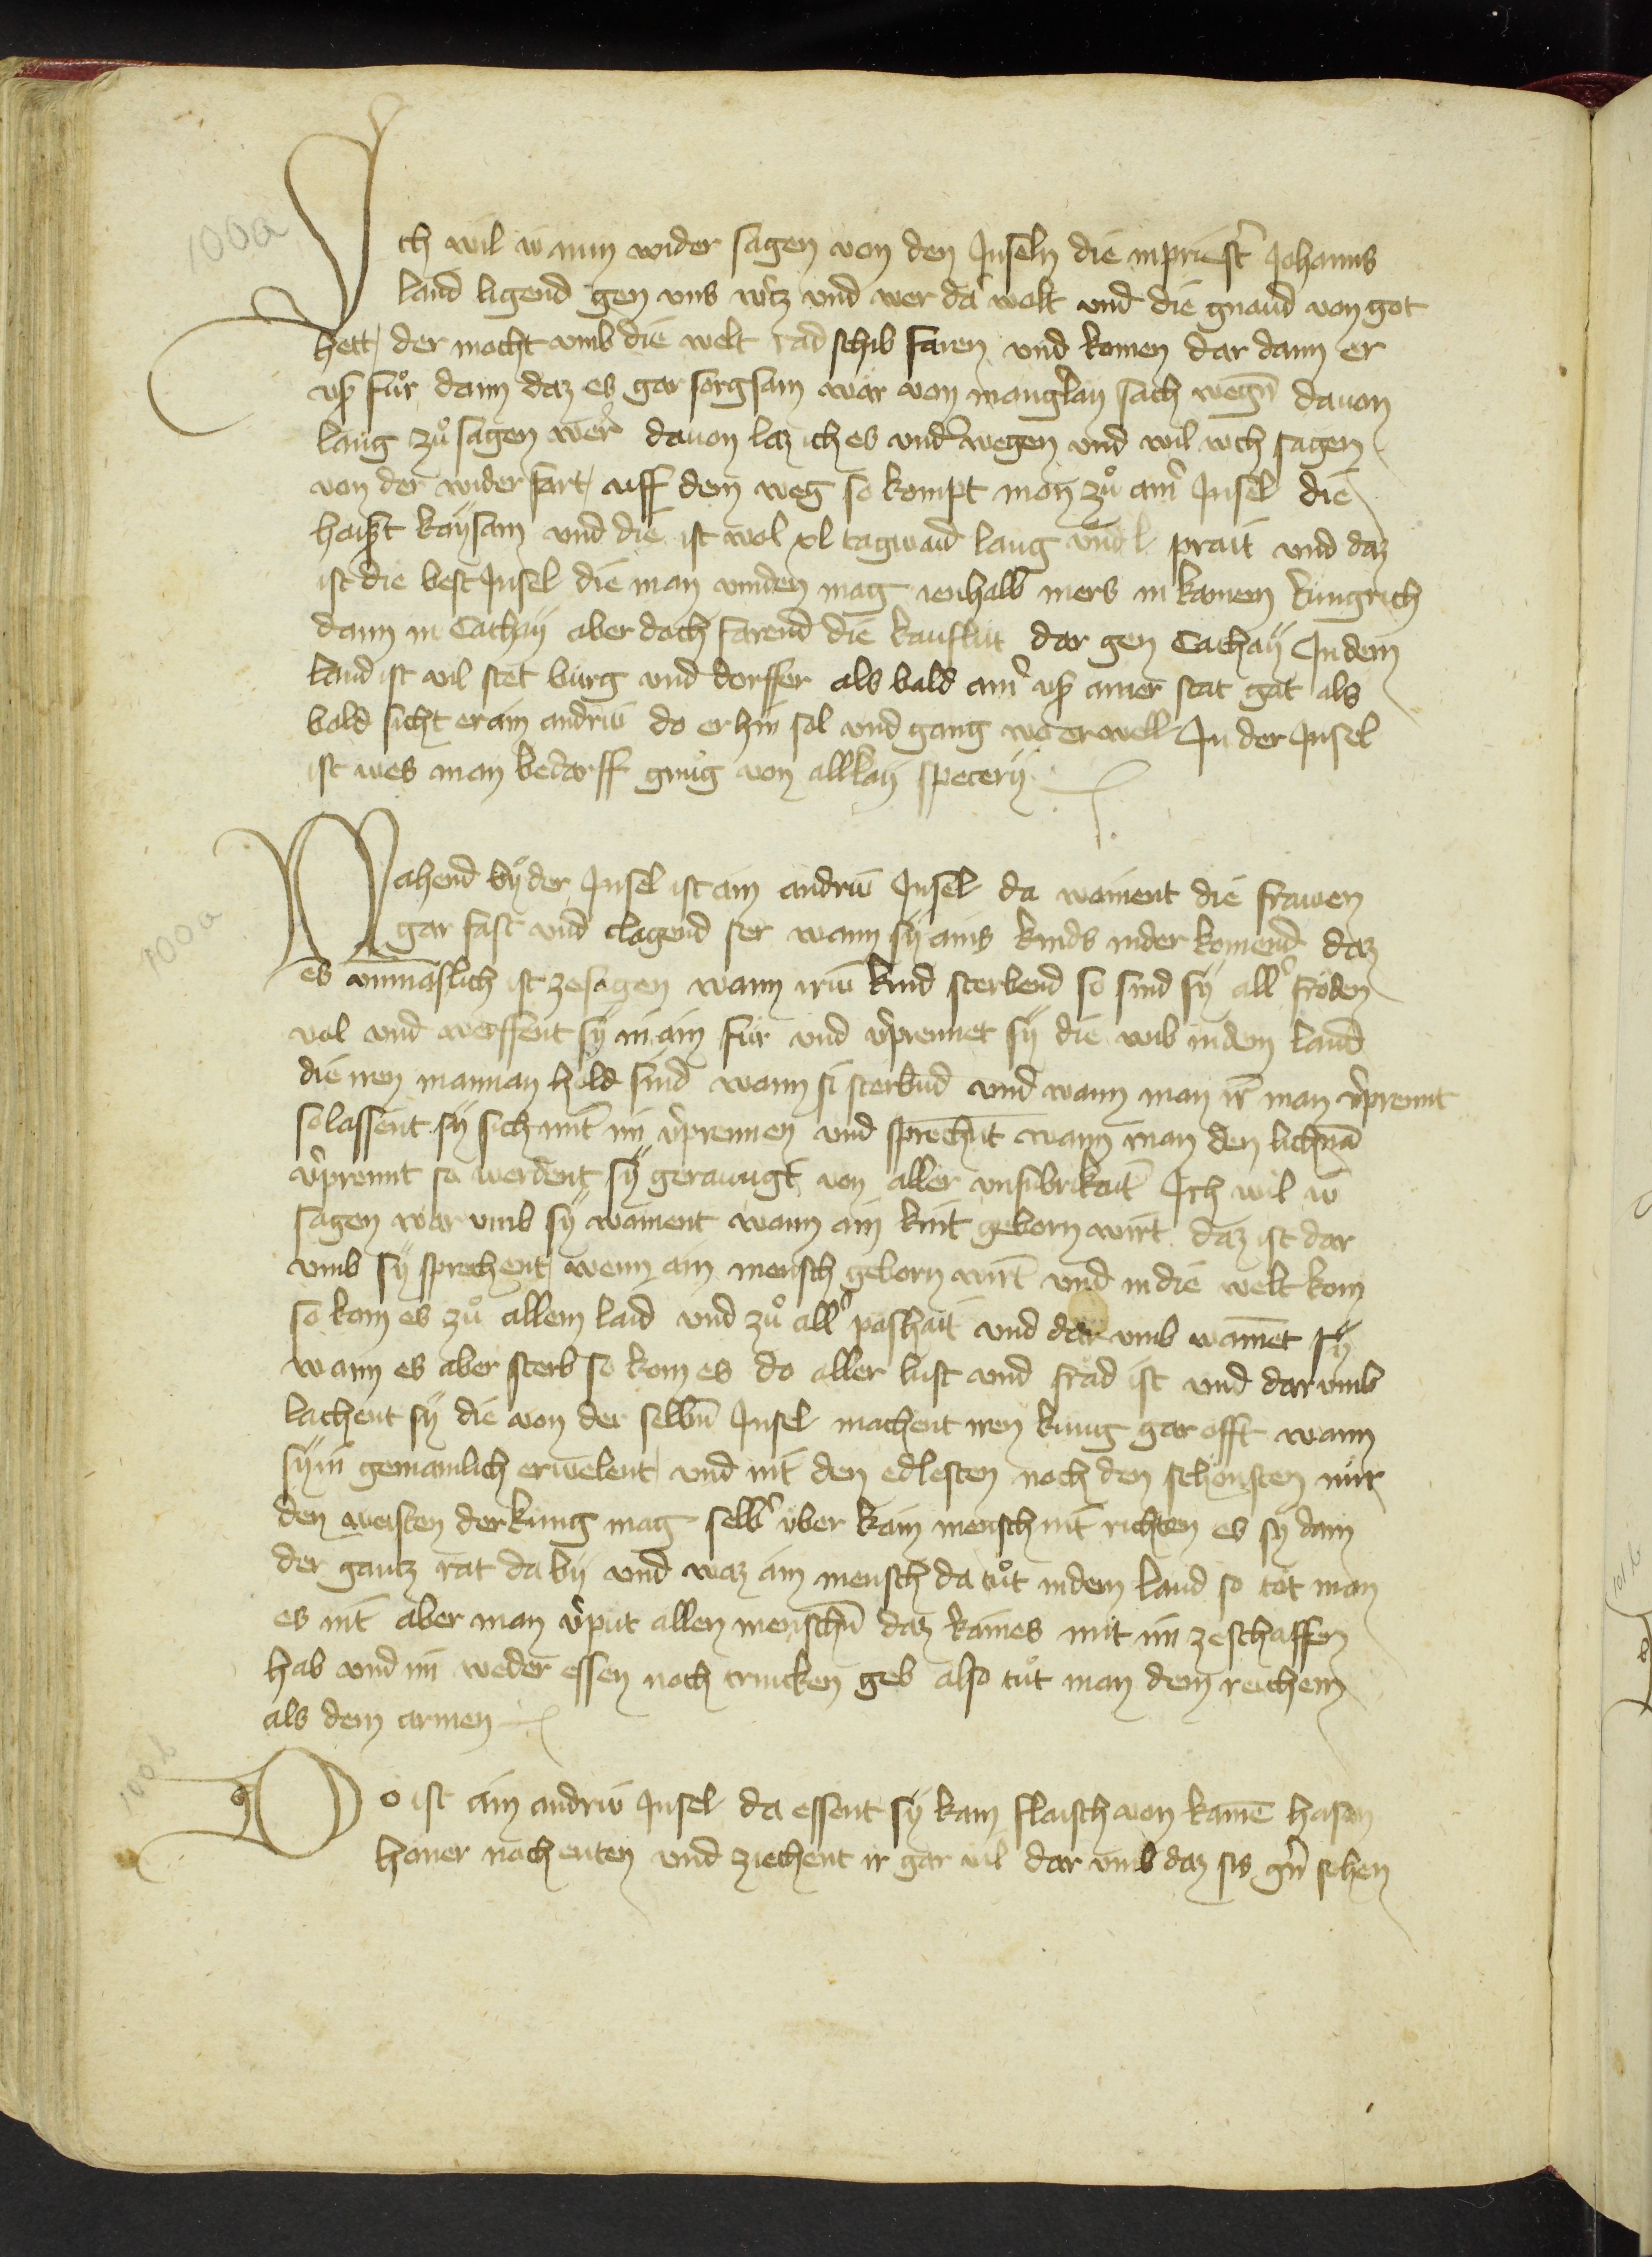 100a
Ich wil iv nun wider sagen von den Inseln die in priestr Johanns
land ligend gen uns wrtz und wer da wolt und die gnaud von got
hett der mocht umb die welt rad schib faren und komen dar dann er
uß fuͦr dann daz es gar sorgsam wär von mangrlay sach wegn̄ davon
lang zuͦ sagen wer davon laz ich es undrwegen und wil üch sagen
von der wider fart uff dem weg so kompt man zuͦ ainr Insel die
haißt kaysam und die ist wol xl tagwaid lang und l prait und daz
ist die best Insel die man vinden mag ienhalb mers in kainem küngrich
dann in Cathay aber doch farend die kauflüt dar gen Cathay In dem
land ist vil stet bürg und dorffer als bald ainr uß ainer stat gat als
bald sicht er ain andriv do er hin sol und gang wa er well In der Insel
ist wes man bedarff gnuͦg von allrlay specery
100a
Nahend by der Insel ist ain andriv Insel da wainent die frawen
gar fast und clagend ser wann sy ains kinds nider komend daz
es unmaslich ist ze sagen wann iriv kind sterbend so sind sy allr fröden
vol und werffent sy in ain für und vrprennet sy die wib in dem land
die iren mannan hold sind wann si sterbend und wann man ir man vrprennt
so lassent sy sich mit im vrprennen und sprechent wann man den lichnā
vrprennt so werdent sy gerainigt von aller unsubrikait Ich wil iv
sagen war umb sy wainent wann ain kint geborn wirt daz ist dar
umb sy sprechent wenn ain mensch geborn wirt und in die welt kom
so kom es zuͦ allem laid und zuͦ allr poshait und dar umb wainet sy
wann es aber sterb so kom es do aller lust und fräd ist und dar umb
lachent sy die von der selbn̄ Insel machent iren küng gar offt wann
sy in gemainlich erwelent und nit den edlesten noch den schönsten nür
den weisten der küng mag selbr über kain mensch nit richten es sy dann
der gantz rat da by und waz ain mensch da tuͦt in dem land so töt man
es nit aber man vrpüt allen menschn̄ daz kaines mit im ze schaffen
hab und im weder essen noch trincken geb also tuͦt man dem reichem
als dem armen
100b
Do ist ain andriv Insel da essent sy kain flaisch von kainē hasen
honer noch enten und ziechent ir gar vil dar umb daz sis grn sehen